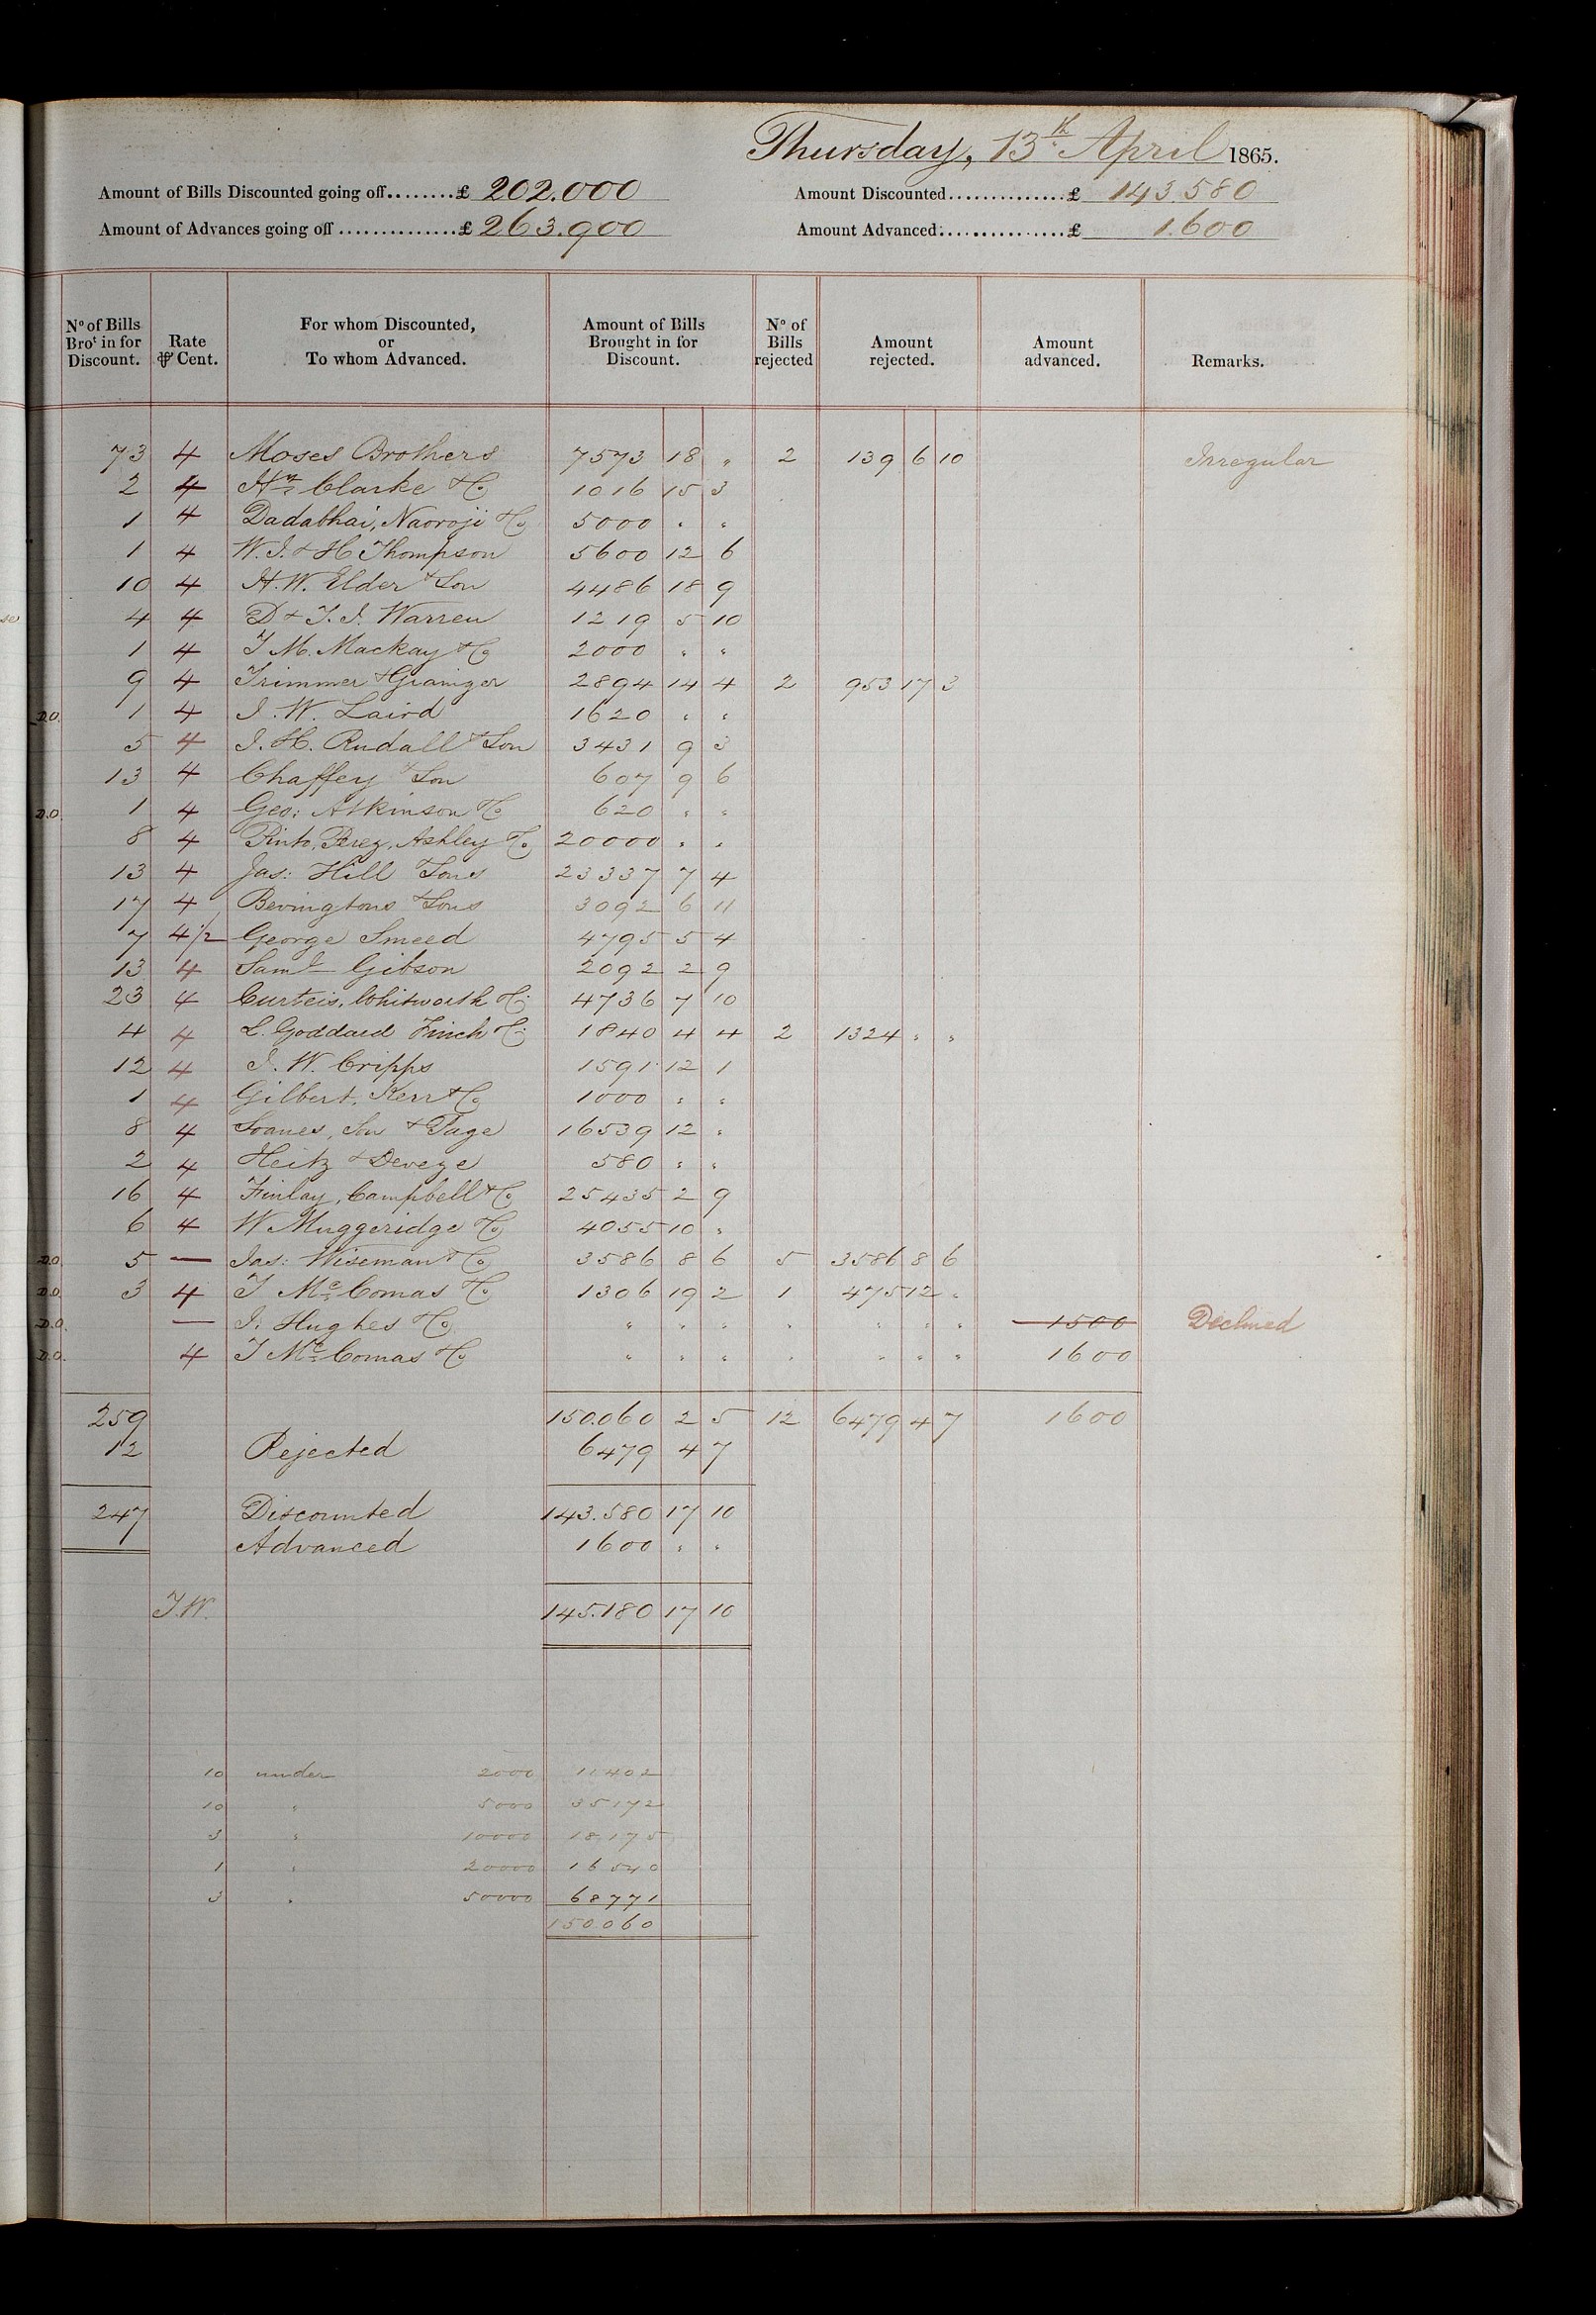 Thursday, 13th April 1865.
Amount of Bills Discounted going off........£ 202.000 Amount Discounted..............£ 143.580
Amount of Advances going off..............£ 263.900 Amount Advanced................£ 1.600
No of Bills Brot in for Discount. Rate ⅌ Cent. For whom Discounted, or To whom Advanced. Amount of Bills Brought in for Discount. No of Bills rejected Amount rejected. Amount advanced. Remarks.
73 4 Moses Brothers 7573 18 " 2 139 6 10 Irregular
2 4 Hy Clarke & Co 1016 15 3
1 4 Dadabhai, Naoroji & Co 5000 " "
1 4 W. J. & H Thompson 5600 12 6
10 4 H. W. Elder & Son 4486 18 9
4 4 D & T. J. Warren 1219 5 10
1 4 T M. Mackay & Co 2000 " "
9 4 Trimmer & Grainger 2894 14 4 2 953 17 3
D.O. 1 4 J. W. Laird 1620 " "
5 4 J. H. Rudall & Son 3431 9 3
13 4 Chaffey & Son 607 9 6
D.O. 1 4 Geo: Atkinson & Co 620 " "
8 4 Pinto, Perez, Ashley & Co 20000 " "
13 4 Jas: Hill & Sons 23337 7 4
17 4 Bevingtons & Sons 3092 6 11
7 4 1/2 George Smeed 4795 5 4
13 4 Saml Gibson 2092 2 9
23 4 Curteis, Whitworth & Co 4736 7 10
4 4 L. Goddard Finch & Co 1840 4 4 2 1324 " "
12 4 J. W. Cripps 1591 12 1
1 4 Gilbert, Kerr & Co 1000 " "
8 4 Soanes, Son & Page 16539 12 "
2 4 Heitz & Deveze 580 " "
16 4 Finlay, Campbell & Co 25435 2 9
6 4 W Muggeridge & Co 4055 10 "
D.O. 5 — Jas: Wiseman & Co 3586 8 6 5 3586 8 6
D.O. 3 4 T McComas & Co 1306 19 2 1 475 12 "
D.O. — J: Hughes & Co " " " " " " " 1500 Declined
D.O. 4 T McComas & Co " " " " " " " 1600
259 150.060 2 5 12 6479 4 7 1600
12 Rejected 6479 4 7
247 Discounted 143.580 17 10
Advanced 1600 " "
T.W. 145.180 17 10
10 under 2000 11402
10 " 5000 35172
3 " 10000 18.175
1 " 20000 16540
3 " 50000 68771
150.060